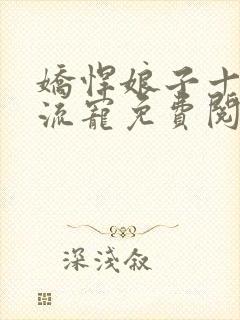 嬌悍娘子十
流寵免費閱
深淺敘